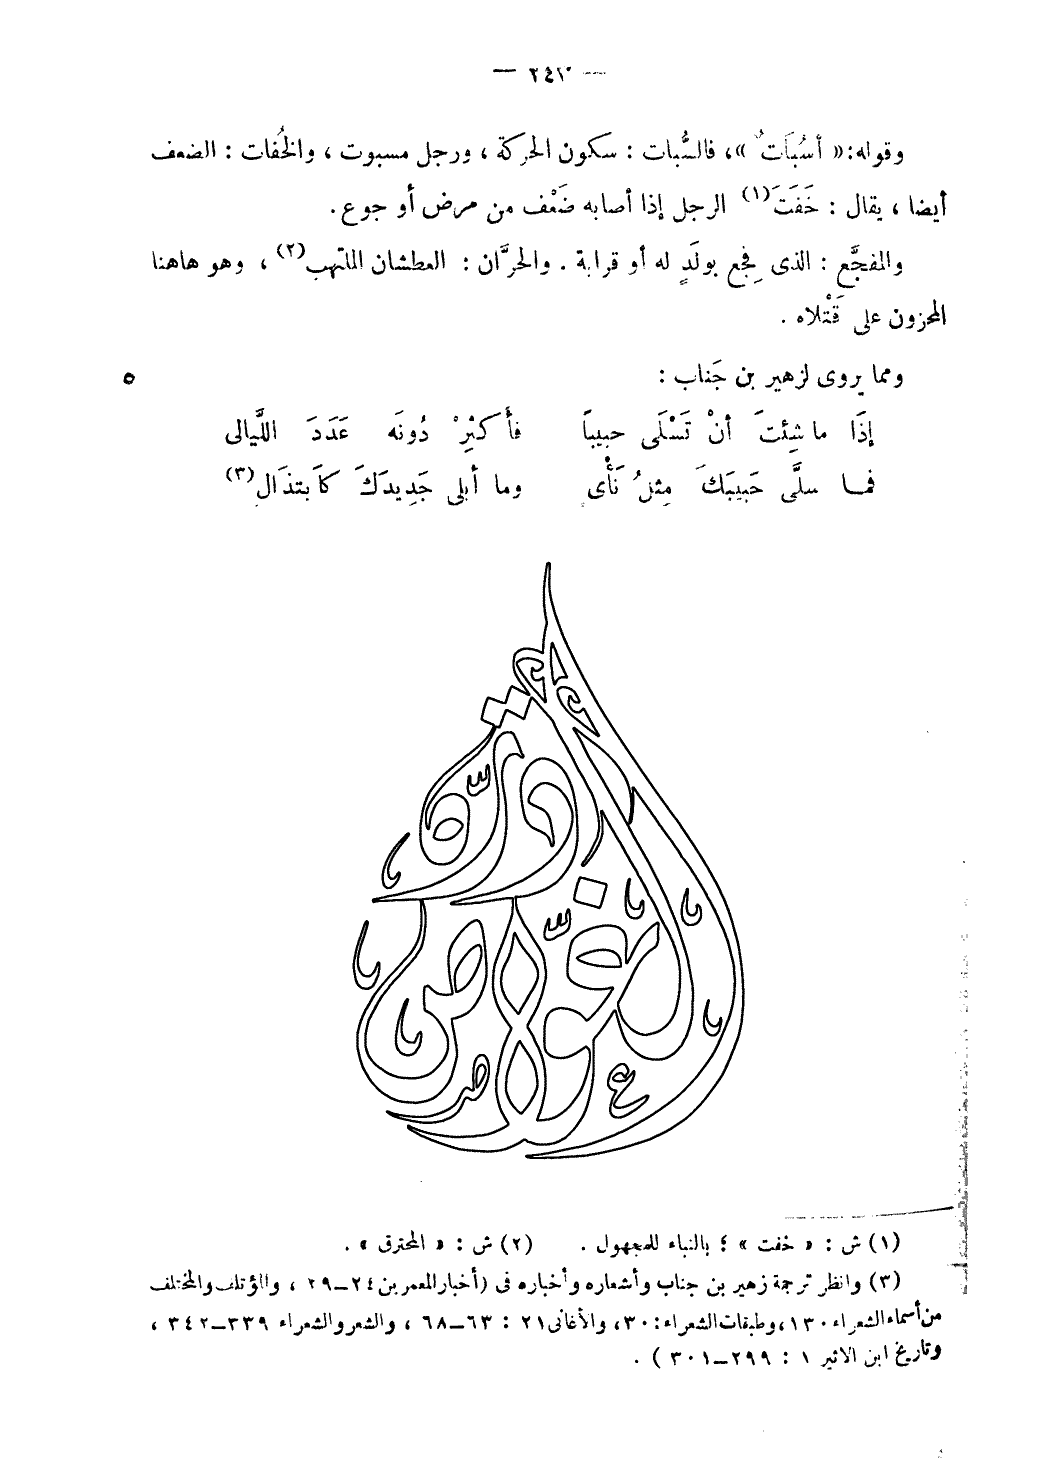 — ٢٤٣ —
وقوله: « أسُبَاتٌ »، فالسُّبات : سكون الحركة ، ورجل مسبوت ، والخُفات : الضعف
أيضا ، يقال : خَفَتَ(١) الرجل إذا أصابه ضَعْف من مرض أو جوع .
والمفجَّع : الذى فجِع بولَدٍ له أو قرابة . والحرَّان : العطشان الملتهب(٢) ، وهو هاهنا
المحزون على قَتْلاه .
ومما يروى لزهير بن جَناب : ٥
إذَا ما شِئتَ أنْ تَسْلَى حبيباً فأَكثِرْ دُونَه عَدَدَ اللَّيالى
فمـا سلَّى حَبيبَكَ مِثلُ نَأْىٍ وما أبلى جَدِيدَكَ كَابتذَالِ(٣)
درّة الغوّاص
(١) ش : « خفت » ؛ بالبناء للمجهول . (٢) ش : « المحترق » .
(٣) وانظر ترجمة زهير بن جناب وأشعاره وأخباره فى (أخبار المعمرين ٢٤–٢٩ ، والمؤتلف والمختلف
من أسماء الشعراء ١٣٠، وطبقات الشعراء : ٣٠، والأغانى ٢١ : ٦٣–٦٨ ، والشعر والشعراء ٣٣٩–٣٤٢ ،
وتاريخ ابن الاثير ١ : ٢٩٩–٣٠١ ) .